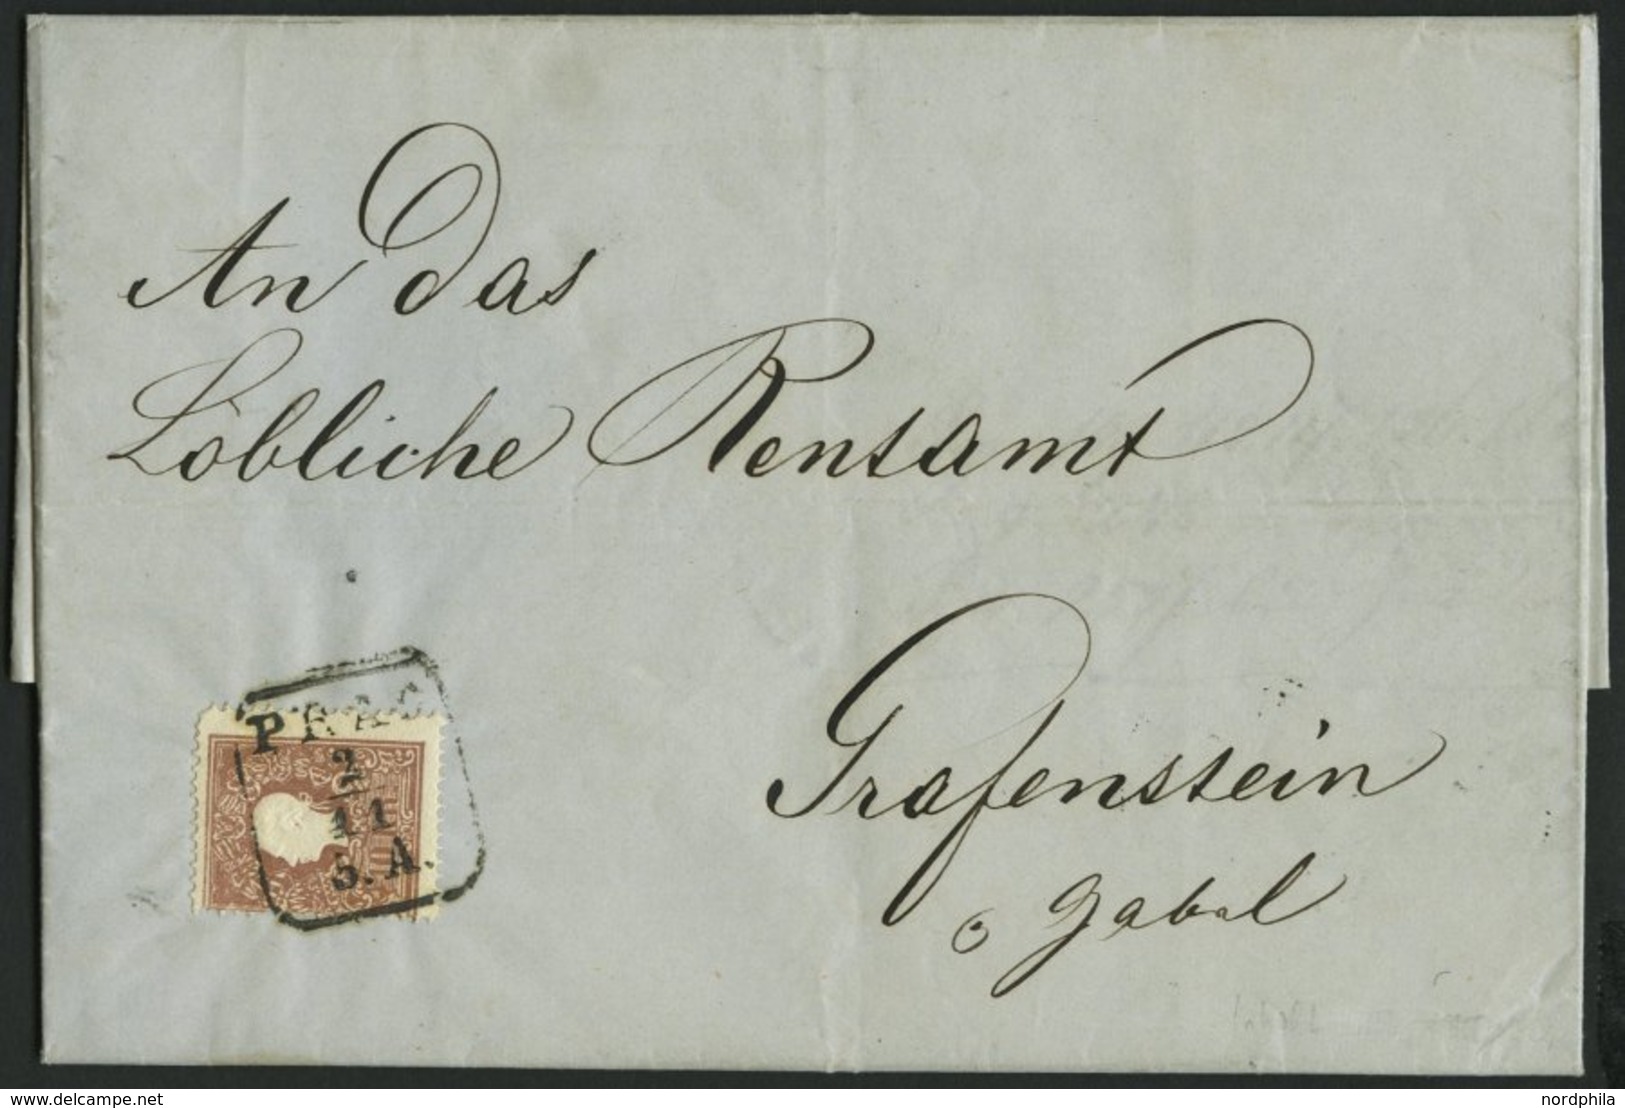 An das
Löbliche Rentamt
Grafenstein
o Gabel
PRAG
2
11
5. A.
10
www.delcampe.net
nordphila